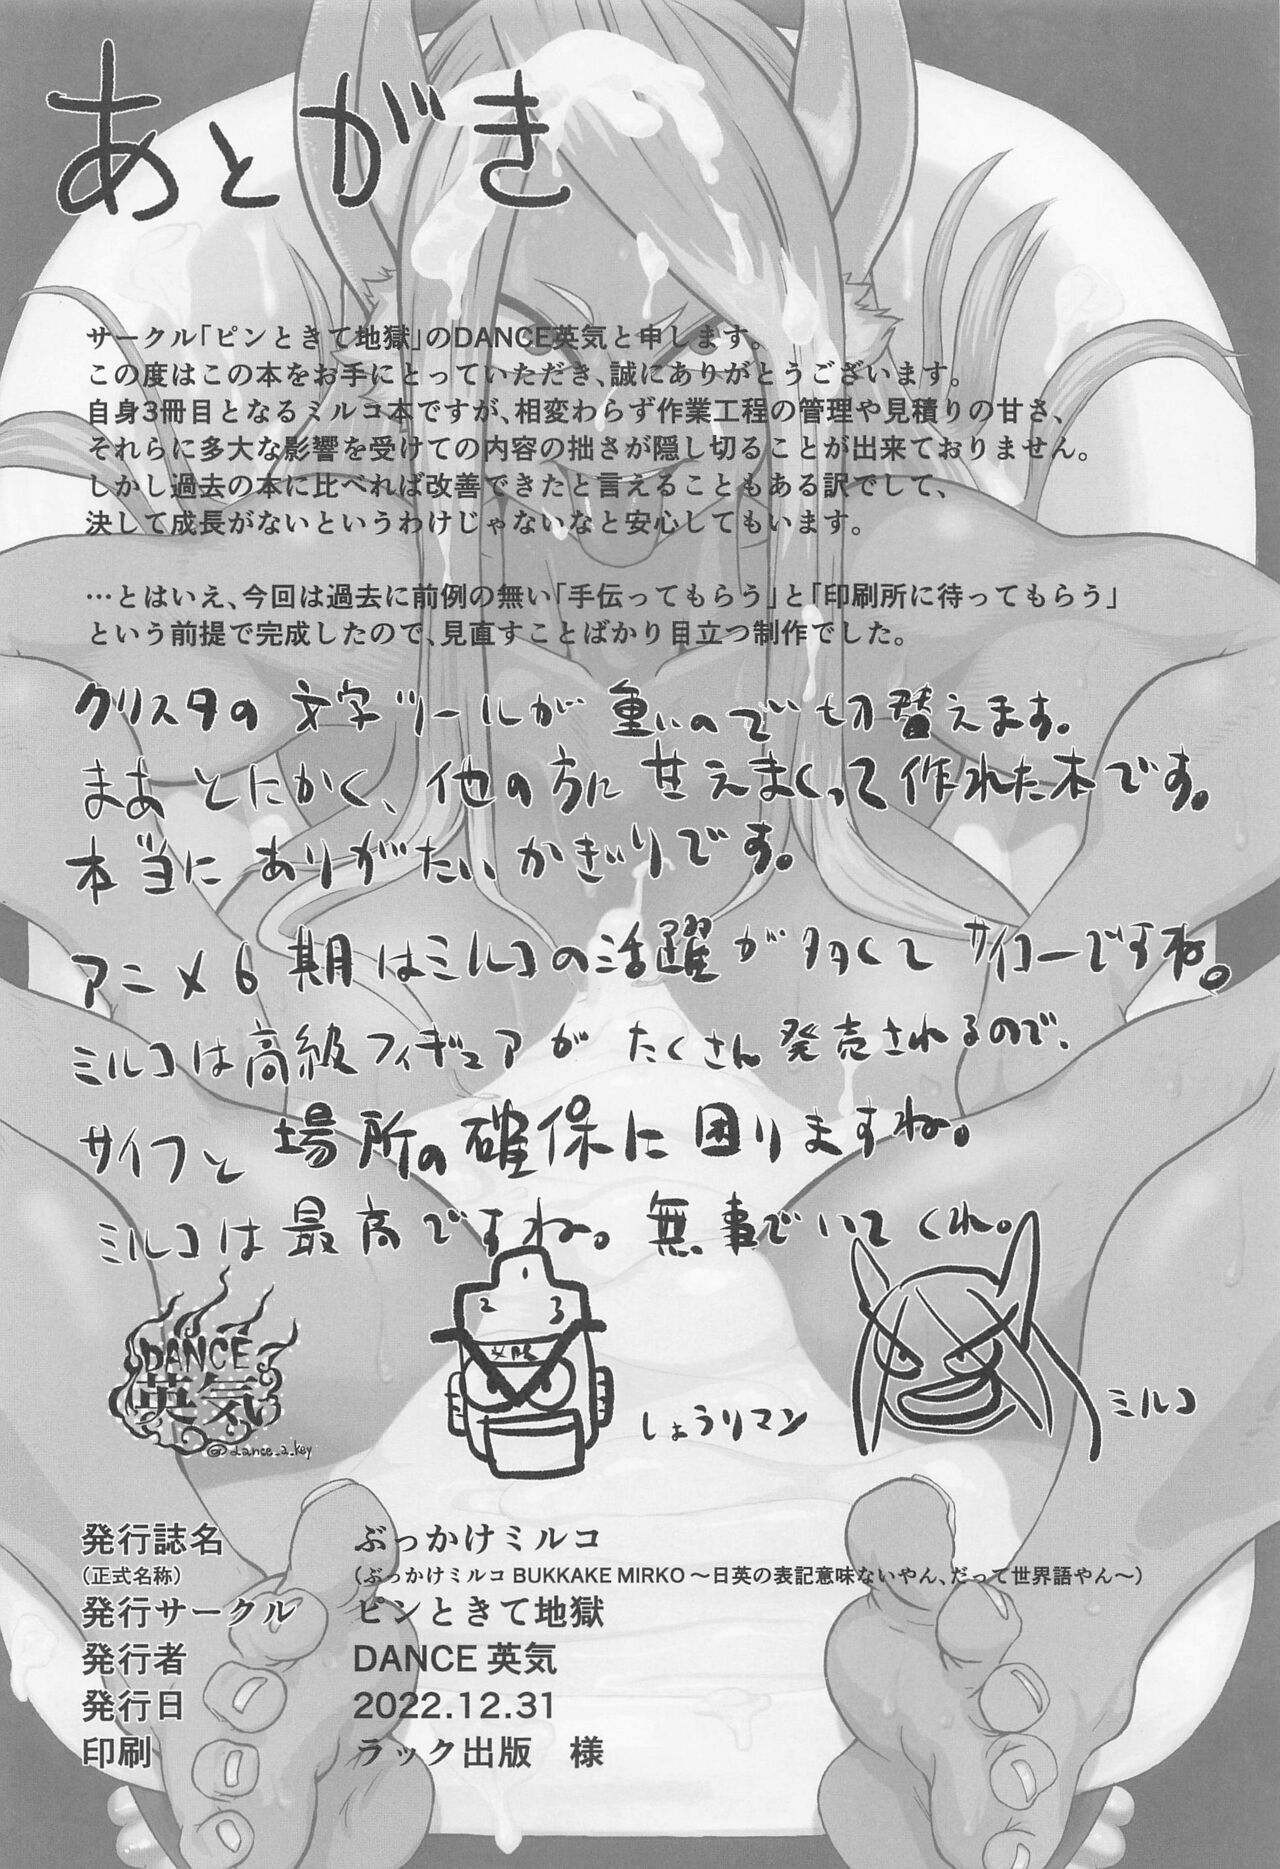 あとがき
サークル「ピンときて地獄」のDANCE英気と申します。
この度はこの本をお手にとっていただき、誠にありがとうございます。
自身3冊目となるミルコ本ですが、相変わらず作業工程の管理や見積りの甘さ、
それらに多大な影響を受けての内容の拙さが隠し切ることが出来ておりません。
しかし過去の本に比べれば改善できたと言えることもある訳でして、
決して成長がないというわけじゃないなと安心してもいます。
…とはいえ、今回は過去に前例の無い「手伝ってもらう」と「印刷所に待ってもらう」
という前提で完成したので、見直すことばかり目立つ制作でした。
クリスタの文字ツールが重いので切替えます。
まあとにかく、他の方に甘えまくって作れた本です。
本当にありがたいかぎりです。
アニメ6期はミルコの活躍が多くてサイコーですね。
ミルコは高級フィギュアがたくさん発売されるので、
サイフと場所の確保に困りますね。
ミルコは最高ですね。無事でいてくれ。
DANCE
英気
@dance_a_key
1
2 3
しょうりマン
ミルコ
発行誌名 ぶっかけミルコ
(正式名称) (ぶっかけミルコ BUKKAKE MIRKO ～日英の表記意味ないやん、だって世界語やん～)
発行サークル ピンときて地獄
発行者 DANCE 英気
発行日 2022.12.31
印刷 ラック出版 様